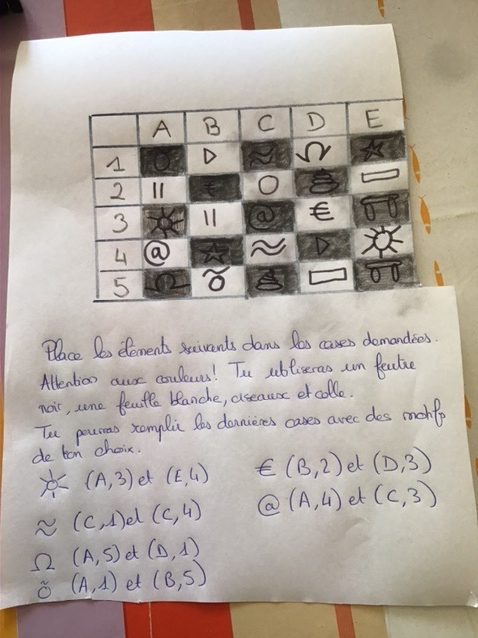 A B C D E
1 õ ▷ ≈ Ω ☆
2 || € O ▭
3 ☼ || @ €
4 @ ☆ ≈ ▷ ☼
5 Ω õ ▭
Place les éléments suivants dans les cases demandées.
Attention aux couleurs! Tu utiliseras un feutre
noir, une feuille blanche, ciseaux et colle.
Tu pourras remplir les dernières cases avec des motifs
de ton choix.
☼ (A,3) et (E,4)
≈ (C,1) et (C,4)
Ω (A,5) et (D,1)
õ (A,1) et (B,5)
€ (B,2) et (D,3)
@ (A,4) et (C,3)